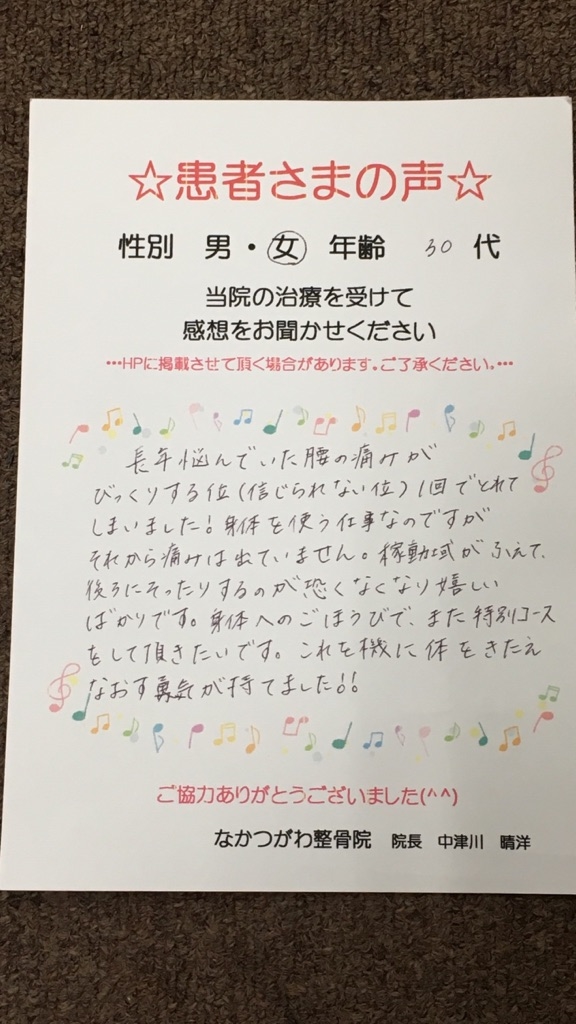 ☆患者さまの声☆
性別 男・女 年齢 30 代
当院の治療を受けて
感想をお聞かせください
…HPに掲載させて頂く場合があります。ご了承ください。…
長年悩んでいた腰の痛みが
びっくりする位(信じられない位)1回でとれて
しまいました!身体を使う仕事なのですが
それから痛みは出ていません。稼動域がふえて、
後ろにそったりするのが恐くなくなり嬉しい
ばかりです。身体へのごほうびで、また特別コース
をして頂きたいです。これを機に体をきたえ
なおす勇気が持てました!!
ご協力ありがとうございました(^^)
なかつがわ整骨院 院長 中津川 晴洋